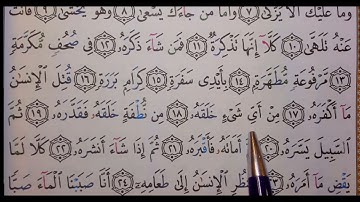 وَمَا عَلَيْكَ أَلَّا يَزَّكَّىٰ ٧ وَأَمَّا مَن جَآءَكَ يَسْعَىٰ ٨ وَهُوَ يَخْشَىٰ ٩ فَأَنتَ
عَنْهُ تَلَهَّىٰ ١٠ كَلَّآ إِنَّهَا تَذْكِرَةٌ ١١ فَمَن شَآءَ ذَكَرَهُۥ ١٢ فِى صُحُفٍ مُّكَرَّمَةٍ
١٣ مَّرْفُوعَةٍ مُّطَهَّرَةٍۭ ١٤ بِأَيْدِى سَفَرَةٍ ١٥ كِرَامٍۭ بَرَرَةٍ ١٦ قُتِلَ ٱلْإِنسَٰنُ
مَآ أَكْفَرَهُۥ ١٧ مِنْ أَىِّ شَىْءٍ خَلَقَهُۥ ١٨ مِن نُّطْفَةٍ خَلَقَهُۥ فَقَدَّرَهُۥ ١٩ ثُمَّ
ٱلسَّبِيلَ يَسَّرَهُۥ ٢٠ أَمَاتَهُۥ فَأَقْبَرَهُۥ ٢١ ثُمَّ إِذَا شَآءَ أَنشَرَهُۥ ٢٢ كَلَّا لَمَّا
يَقْضِ مَآ أَمَرَهُۥ ٢٣ ٱلْإِنسَٰنُ إِلَىٰ طَعَامِهِۦٓ ٢٤ أَنَّا صَبَبْنَا ٱلْمَآءَ صَبًّا